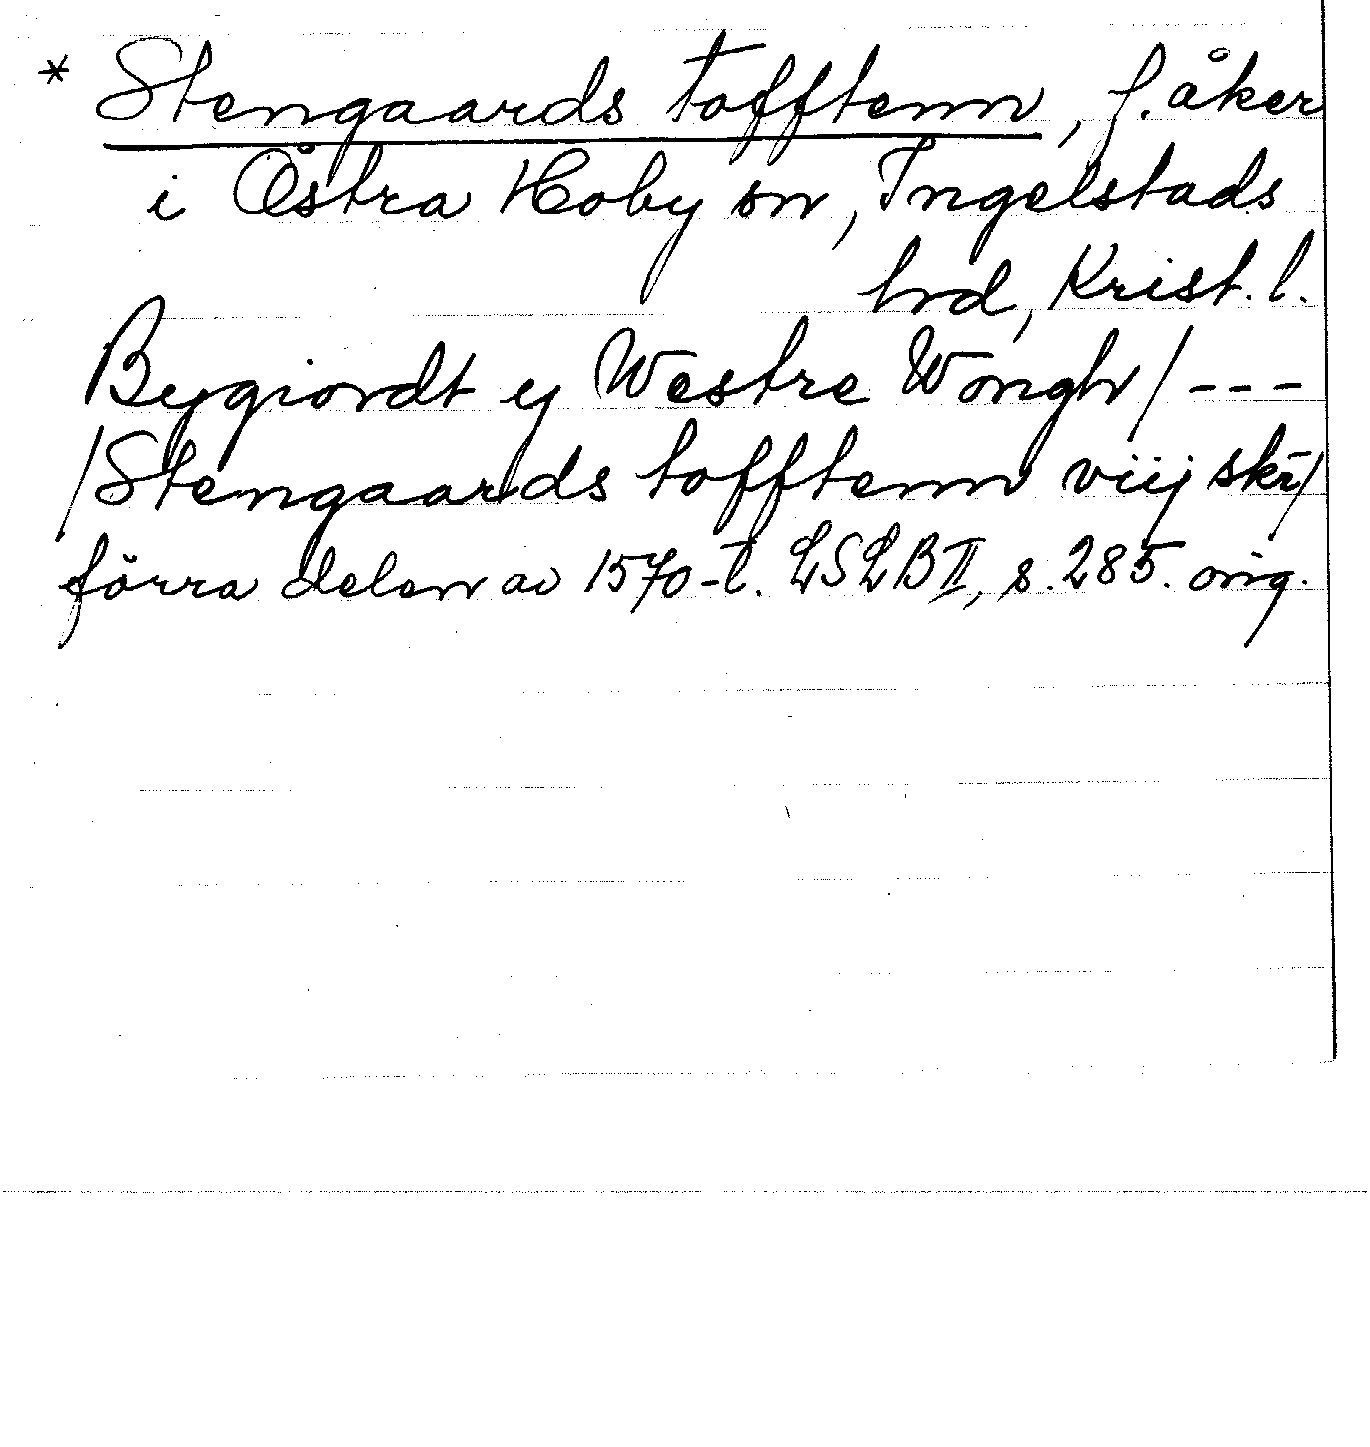 * Stengaards tofftenn, f. åker
i Östra Hoby sn, Ingelstads
hrd, Krist. l.
Bygiordt y Westre Wongh / ---
/ Stengaards tofftenn viij skr̄ /
förra delen av 1570-t. LSLB II, s. 285. orig.